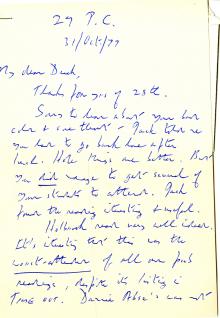 29 P.C.
31/Oct/77
My dear Dick,
Thank for yrs of 28th.
Sorry to hear about your bad
cold & sore throat - Jack told me
you had to go back home after
lunch. Hope things are better. But
you did manage to get several of
your students to attend. Jack
found the reading interesting & useful.
Holbrook read very well indeed.
It's interesting that this was the
worst-attended of all our
readings, despite its listing in
TIME OUT. Dannie Abse's was not